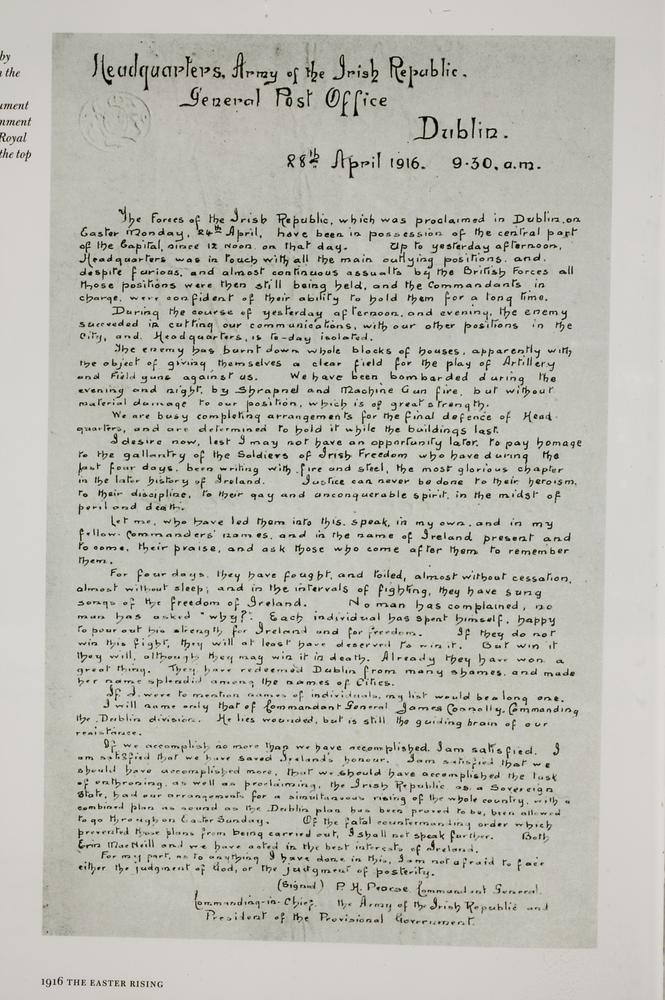 by
the
ument
nment
Royal
the top
Headquarters, Army of the Irish Republic.
General Post Office
Dublin.
28th April 1916. 9.30. a.m.
The Forces of the Irish Republic, which was proclaimed in Dublin, on
Easter Monday, 24th April, have been in possession of the central part
of the Capital, since 12 noon on that day. Up to yesterday afternoon,
Headquarters was in touch with all the main outlying positions, and,
despite furious, and almost continuous assualts by the British Forces all
those positions were then still being held, and the Commandants in
charge, were confident of their ability to hold them for a long time.
During the course of yesterday afternoon, and evening, the enemy
succeeded in cutting our communications, with our other positions in the
City, and Headquarters, is to-day isolated.
The enemy has burnt down whole blocks of houses, apparently with
the object of giving themselves a clear field for the play of Artillery
and Field guns against us. We have been bombarded during the
evening and night, by Shrapnel and Machine Gun fire, but without
material damage to our position, which is of great strength.
We are busy completing arrangements for the final defence of Head-
quarters, and are determined to hold it while the buildings last.
I desire now, lest I may not have an opportunity later, to pay homage
to the gallantry of the Soldiers of Irish Freedom who have during the
past four days, been writing with fire and steel, the most glorious chapter
in the later history of Ireland. Justice can never be done to their heroism,
to their discipline, to their gay and unconquerable spirit, in the midst of
peril and death.
Let me, who have led them into this, speak, in my own, and in my
fellow-Commanders' names, and in the name of Ireland present and
to come, their praise, and ask those who come after them to remember
them.
For four days, they have fought, and toiled, almost without cessation,
almost without sleep; and in the intervals of fighting, they have sung
songs of the freedom of Ireland. No man has complained, no
man has asked "why?". Each individual has spent himself, happy
to pour out his strength for Ireland and for freedom. If they do not
win this fight, they will at least have deserved to win it. But win it
they will, although they may win it in death. Already they have won a
great thing. They have redeemed Dublin from many shames, and made
her name splendid among the names of Cities.
If I were to mention names of individuals, my list would be a long one.
I will name only that of Commandant General James Connolly, Commanding
the Dublin division. He lies wounded, but is still the guiding brain of our
resistance.
If we accomplish no more than we have accomplished, I am satisfied. I
am satisfied that we have saved Ireland's honour. I am satisfied that we
should have accomplished more, that we should have accomplished the task
of enthroning, as well as proclaiming, the Irish Republic as a Sovereign
State, had our arrangements for a simultaneous rising of the whole country, with a
combined plan as sound as the Dublin plan has been proved to be, been allowed
to go through on Easter Sunday. Of the fatal countermanding order which
prevented those plans from being carried out, I shall not speak further. Both
Eoin MacNeill and we have acted in the best interests of Ireland.
For my part, as to anything I have done in this, I am not afraid to face
either the judgment of God, or the judgment of posterity.
(Signed) P. H. Pearse. Commandant General.
Commanding-in-Chief. the Army of the Irish Republic and
President of the Provisional Government.
1916 THE EASTER RISING